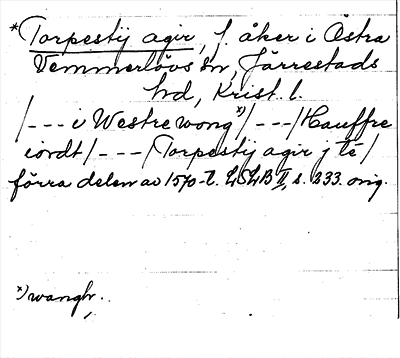 *Torpestij agir, f. åker i Östra
Vemmerlövs sn, Järrestads
hd, Krist. l.
/--- i Westre wong x)/---/Hauffre
iordt/---/Torpestij agir j té/
förra delen av 1570-t. LSLB II, s. 233. orig.
x) wangh.